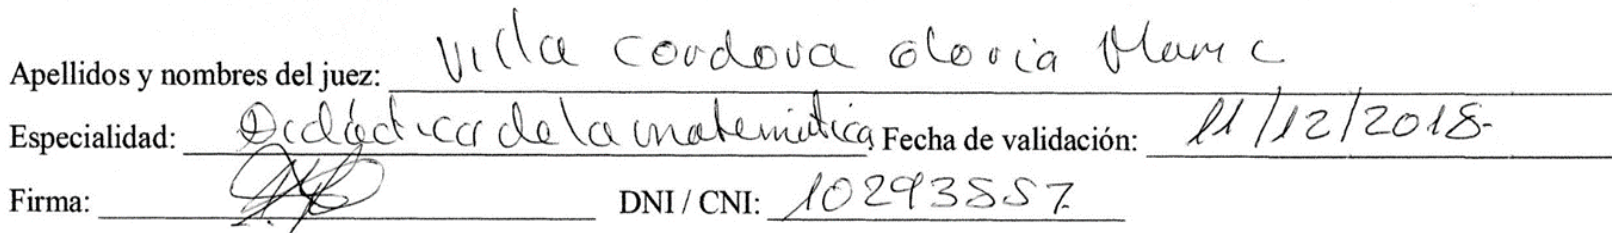 Apellidos y nombres del juez: Villa Cordova Gloria Maria C
Especialidad: Didáctica de la matemática Fecha de validación: 11/12/2018-
Firma: DNI / CNI: 10293557